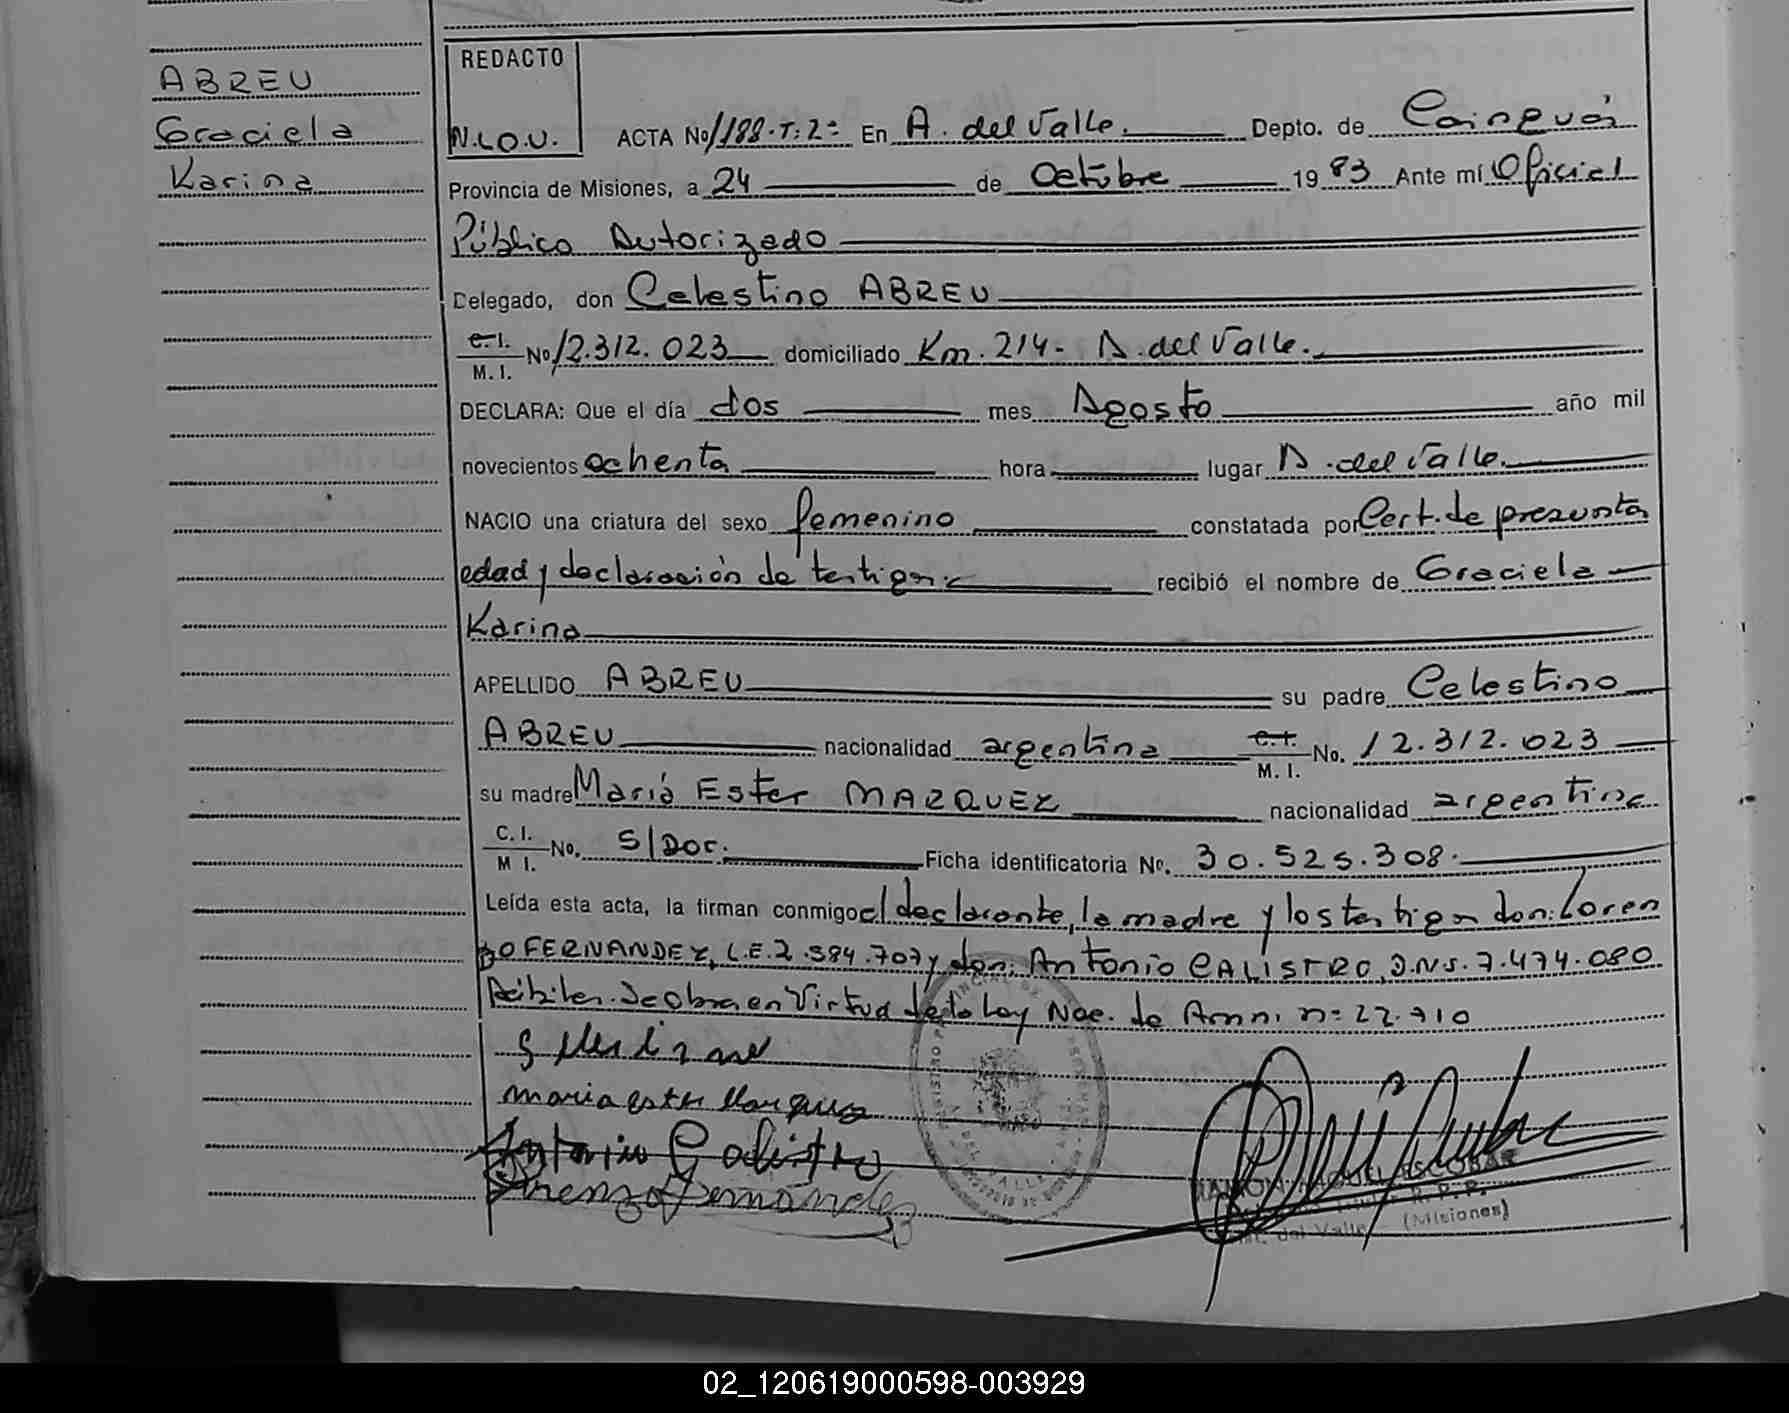 ABREU
Graciela
Karina
REDACTO
N.L.O.U.
ACTA No 1188.T:2º En A. del Valle. Depto. de Cainguás
Provincia de Misiones, a 24 de Octubre 19 83 Ante mí Oficial
Público Autorizado
Delegado, don Celestino ABREU
C.I. M.I. No 12.312.023 domiciliado Km. 214- A. del Valle.
DECLARA: Que el día dos mes Agosto año mil
novecientos ochenta hora lugar A. del Valle.
NACIO una criatura del sexo femenino constatada por Cert. de presunta
edad y declaración de testigos. recibió el nombre de Graciela
Karina
APELLIDO ABREU su padre Celestino
ABREU nacionalidad argentina C.I. M.I. No. 12.312.023
su madre María Ester MARQUEZ nacionalidad argentina
C.I. M I. No. S/Doc. Ficha identificatoria No. 30.525.308.
Leída esta acta, la firman conmigo el declarante, la madre y los testigos don: Loren
zo FERNANDEZ, L.E.2.584.707 y don: Antonio CALISTRO, D.N.I.7.474.080
de obra en Virtud de la Ley Nac. de Amn. nº 22.710
maria ester Marques
Antonio Calistro
Lorenzo Fernández
RAMON MIGUEL ESCOBAR
R. P. P.
del Valle (Misiones)
02_120619000598-003929